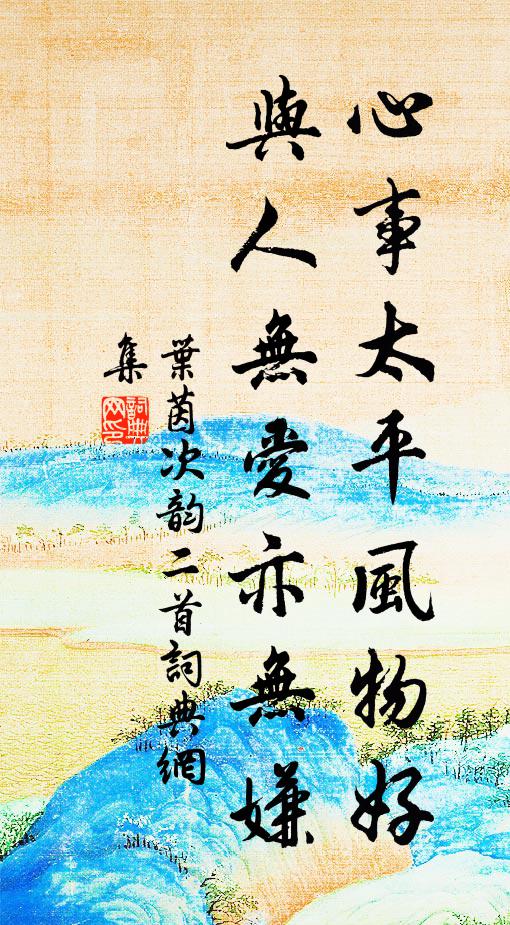 心事太平風物好
與人無愛亦無嫌
葉茵次韵二首詞典網
集
詞典網印